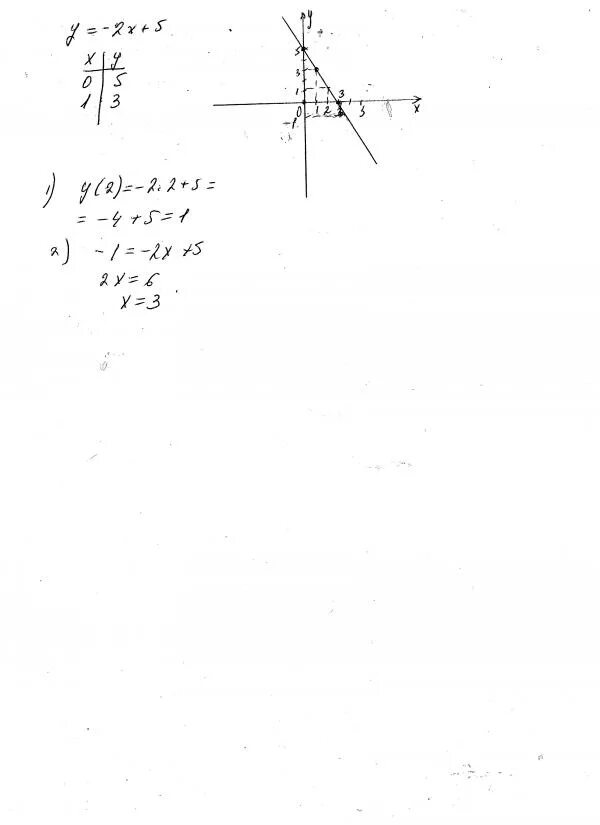 y = -2x+5
x | y
0 | 5
1 | 3
y
5
3
1
0 1 2 3 5
3
x
-1
1) y(2)=-2·2+5=
= -4+5=1
2) -1=-2x+5
2x=6
x=3